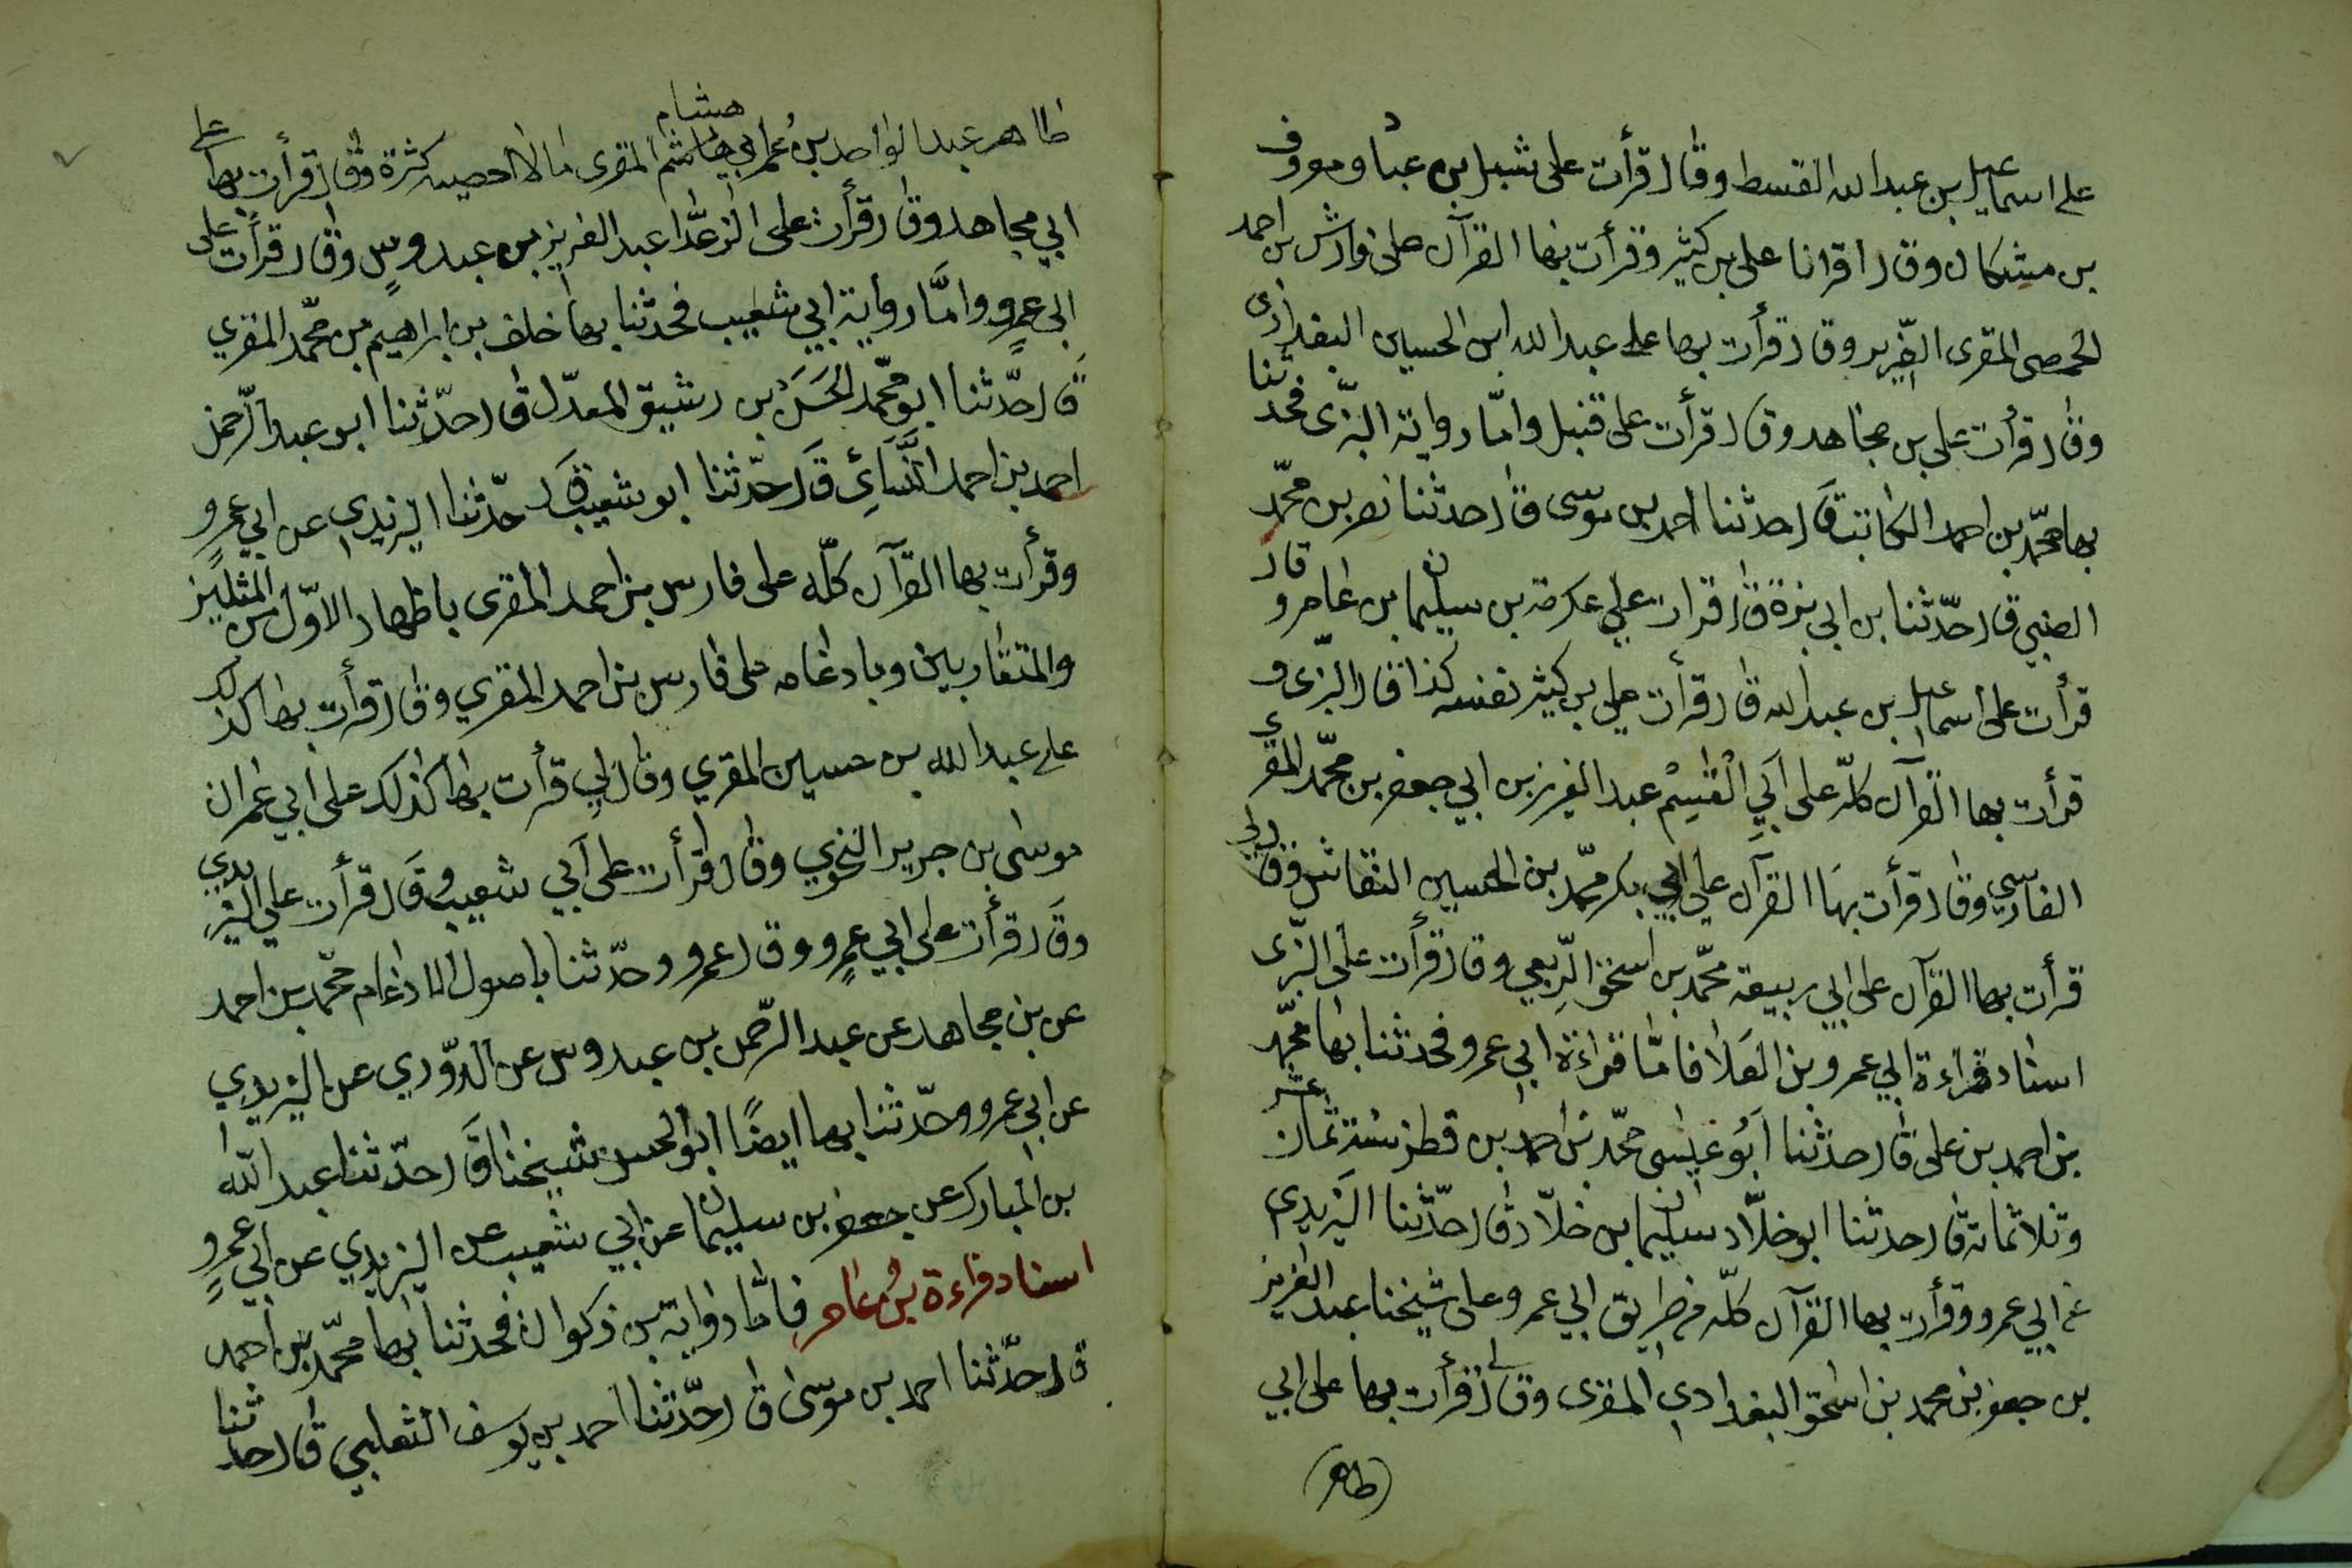 على اسماعيل بن عبدالله القسط وقال قرأت على شبل بن عباد ومعروف
بن مشكان وقال اقرانا على بن كثير وقرأت بها القرآن على فارس بن احمد
الحمصى المقرى الضّرير وقال قرأت بها على عبدالله ابن الحسين البغدادى
وقال قرأت على بن مجاهد وقال قرأت على قنبل وامّا رواية البزّى فحدّثنا
بها محمّد بن احمد الكاتب قال حدثنا احمد بن موسى قال حدثنا نصر بن محمّد
الضبي قال حدّثنا بن ابي بزة قال قرات على عكرمة بن سليمان بن عامر وقال
قرأت على اسماعيل بن عبدالله قال قرأت على بن كثير نفسه كذا قال البزّى و
قرأت بها القرآن كلّه على أبي القسِم عبد العزيز بن ابي جعفر بن محمّد المقرى
الفارسي وقال قرأت بها القرآن على ابي بكر محمّد بن الحسين النقاش وقال لي
قرأت بها القرآن على ابي ربيعة محمّد بن اسحق الرّبعي وقال قرأت على البزّى
اسناد قراءة ابي عمرو بن العلا فامّا قراءة ابي عمرو فحدثنا بها محمّد
بن احمد بن على قال حدثنا أبو عيسى محمّد بن احمد بن قطن سنة ثمان عشر
وثلاثمائة قال حدثنا ابو خلّاد سليمان بن خلّاد قال حدّثنا اليزيدي
عن ابي عمرو وقرأت بها القرآن كلّه من طريق ابي عمرو على شيخنا عبد العزيز
بن جعفر بن محمد بن اسحق البغدادي المقرى وقال لي قرأت بها على ابي
(طاهر)
طاهر عبد الواحد بن عمر ابي هاشم المقرى ما لا احصيه كثرة وقال قرأت بها على
هشام
ابي مجاهد وقال قرأت على الزعدا عبد العزيز بن عبدوسٍ وقال قرأت على
ابي عمرٍو وامَّا رواية ابي شعيب فحدثنا بها خلف بن ابراهيم بن محمّد المقري
قال حدّثنا ابو محمّد الحسن بن رشيق المعدّل قال حدّثنا ابو عبد الرّحمن
احمد بن احمد النَّسَائِي قال حدّثنا ابو شعيب قال حدّثنا اليزيدي عن ابي عمرٍو
وقرأت بها القرآن كلّه على فارس بن احمد المقرى باظهار الاوّل من المثلين
والمتقاربين وبادغامه على فارس بن احمد المقري وقال قرأت بها كذلك
على عبدالله بن حسين المقري وقال لي قرأت بها كذلك على ابي عمران
موسى بن جرير النحوي وقال قرأت على أبي شعيب وقال قرأت على اليزيدي
وقال قرأت على ابي عمرٍو وقال عمرو وحدّثنا باصول الادغام محمّد بن احمد
عن بن مجاهد عن عبد الرّحمن بن عبدوس عن الدّوري عن اليزيدي
عن ابي عمرو وحدّثنا بها ايضًا ابو الحسن شيخنا قال حدّثنا عبدالله
بن المبارك عن جعفر بن سليمان عن ابي شعيب عن اليزيدي عن ابي عمرٍو
اسناد قراءة بن عامر فامّا رواية بن ذكوان فحدثنا بها محمّد بن احمد
قال حدّثنا احمد بن موسى قال حدّثنا احمد بن يوسف الثعلبي قال حدثنا